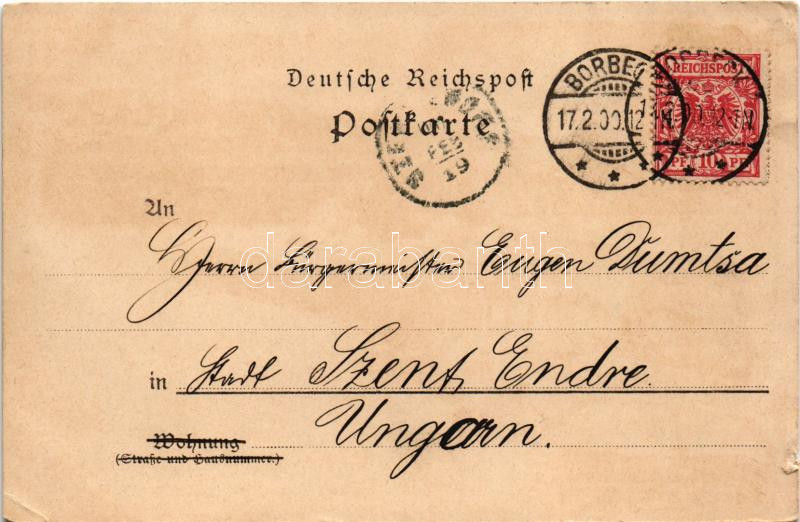 Deutsche Reichspost
Postkarte
BORBECK
17.2.00.12-1N
REICHSPOST
PF 10 PF
19
An
Herrn Bürgermeister Eugen Dumtsa
in Stadt Szent Endre.
Ungarn.
Wohnung
(Straße und Hausnummer.)
darabanth